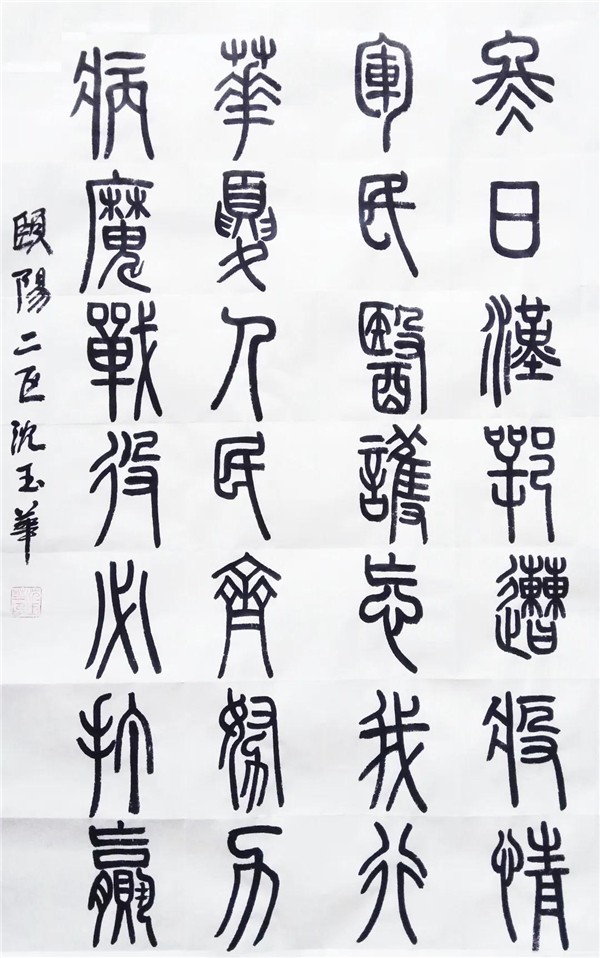 冬日漢鄂遭疫情
軍民醫護忘我行
華夏人民齊努力
病魔戰役必打贏
頤陽二区沈玉華